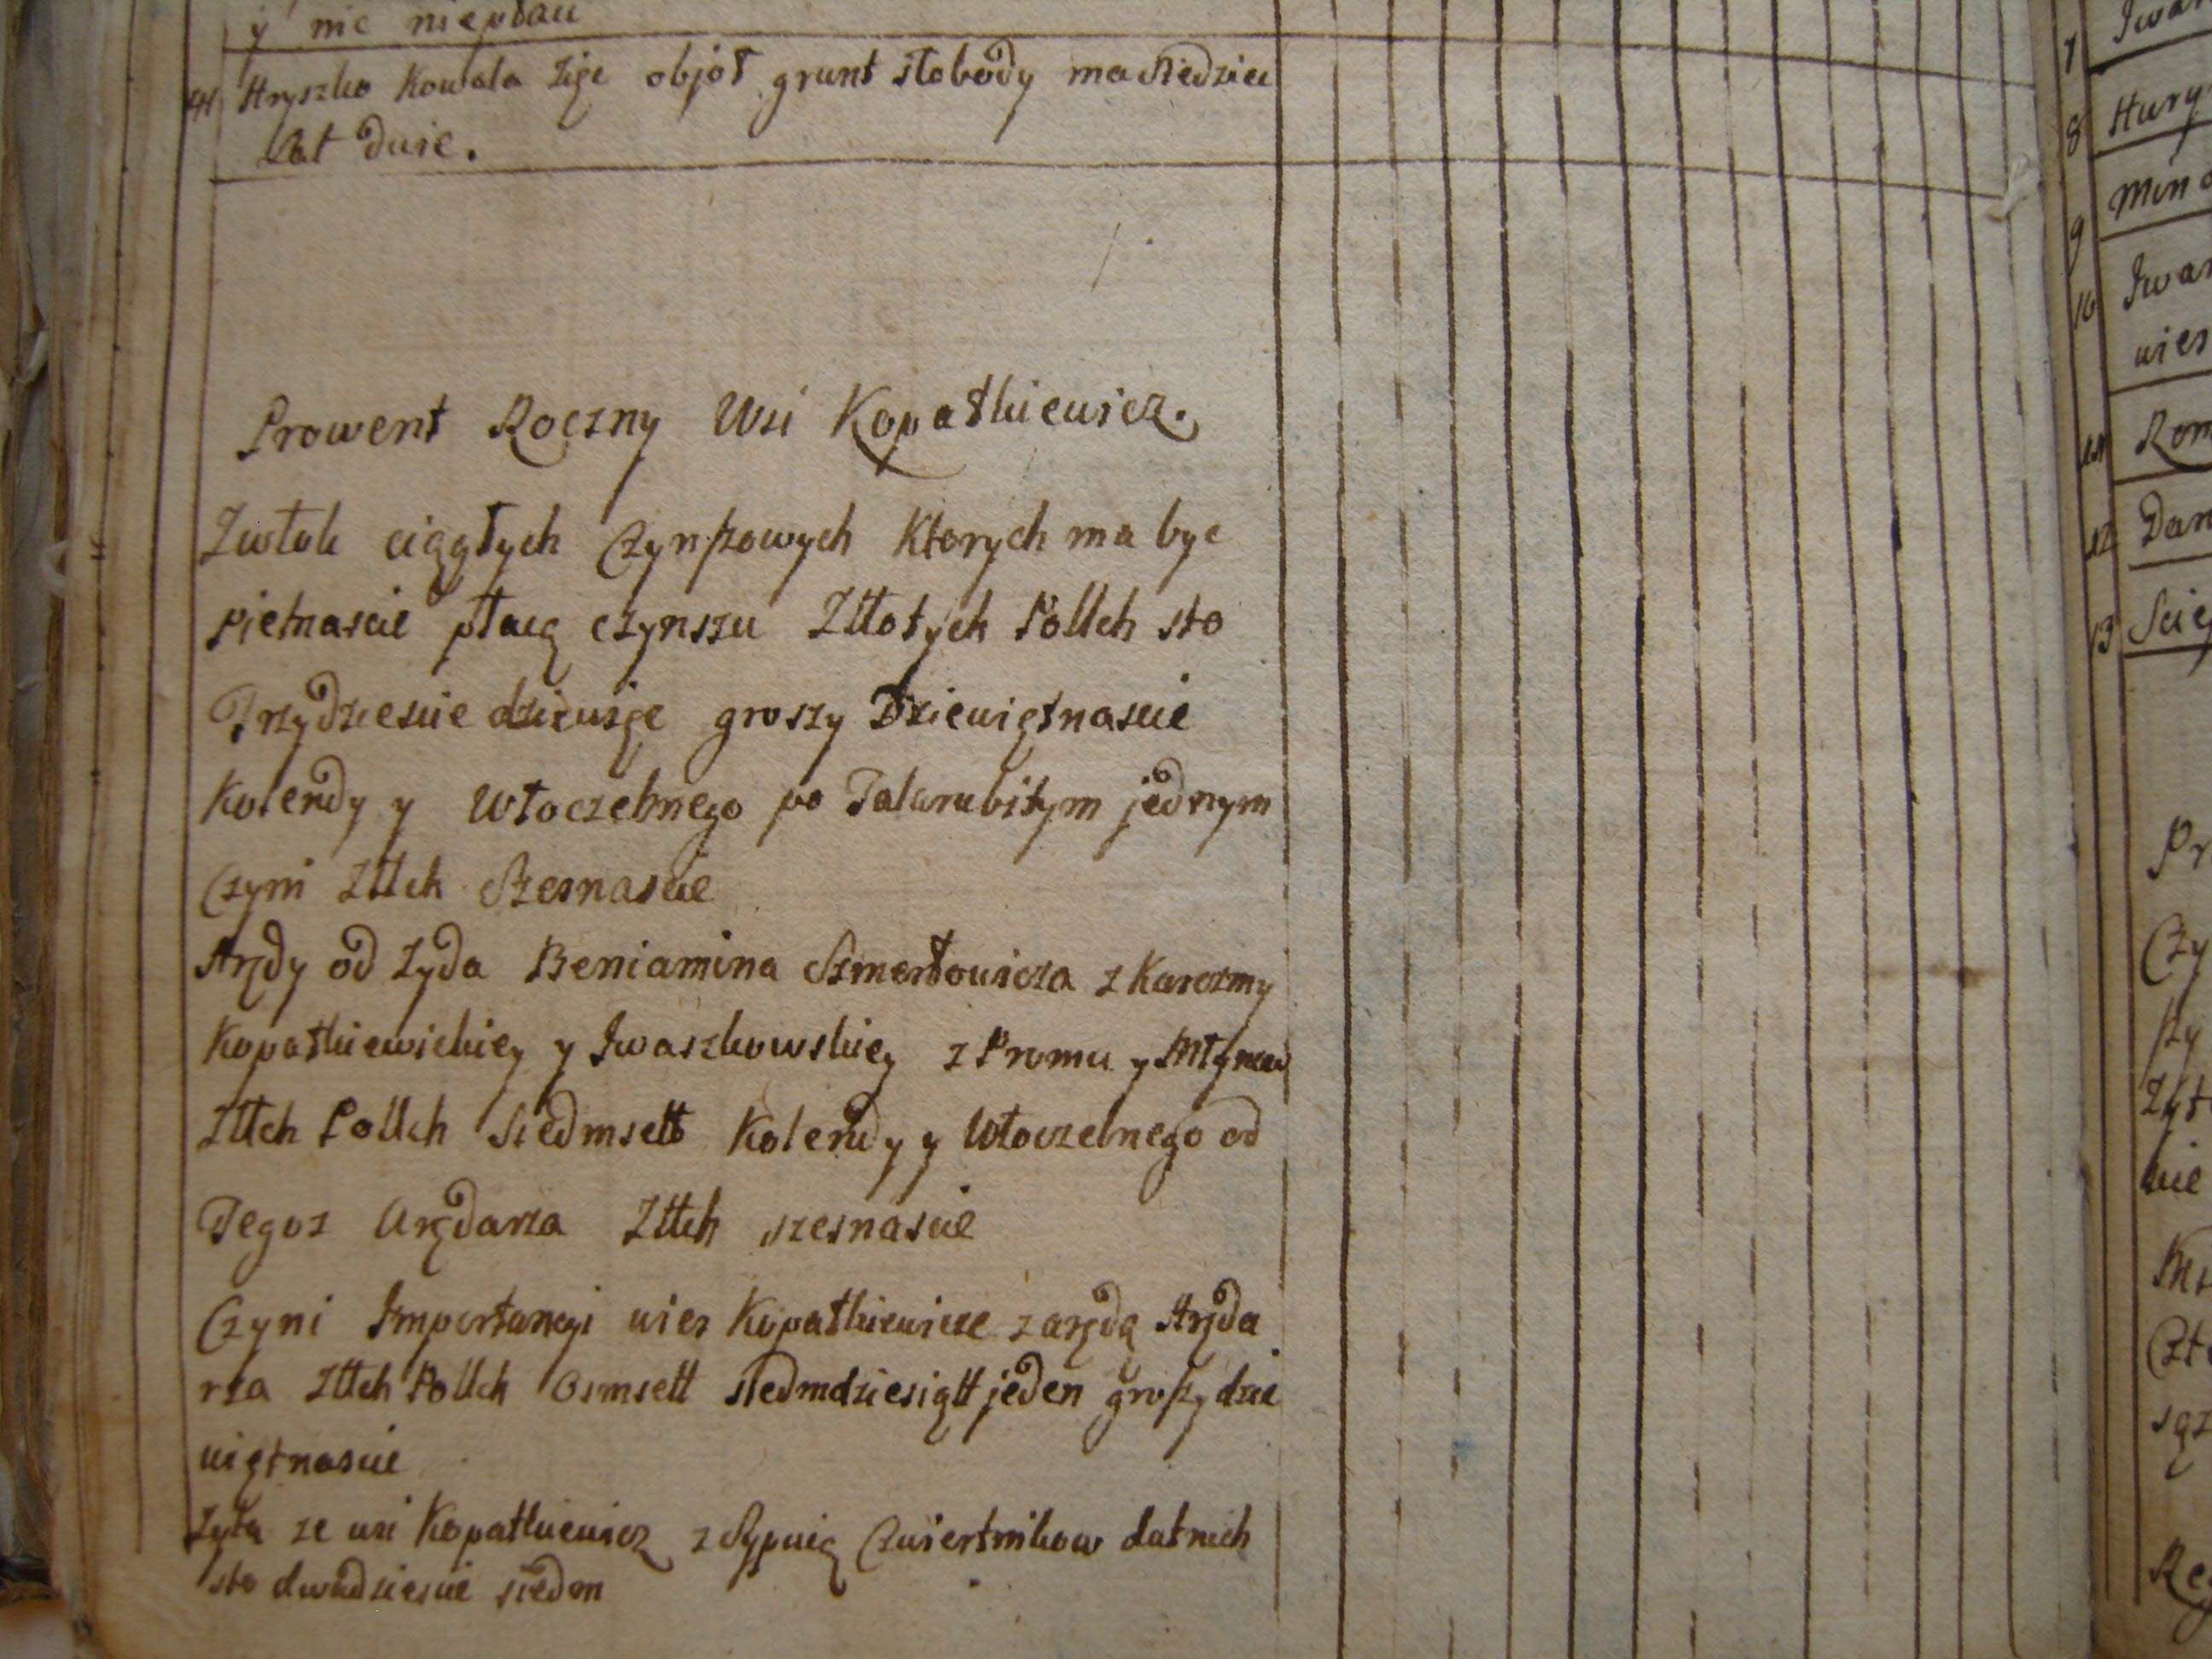 y nic niepłaci
41 Hryszko Kowala Zięc objoł grunt słobody ma siedziec
Lat dwie.
Prowent Roczny Wsi Kopatkiewicz.
Zwłok ciągłych Czynszowych Ktorych ma byc
pietnascie płacą czynszu Złłotych Pollch sto
Trzydziescie dziewięc groszy Dziewiętnascie
Kolendy y Włoczebnego po Talarubitym jednym
Czyni Złłch Szesnascie
Arędy od Zyda Beniamina Szmerłowicza z Karczmy
Kopatkiewickiey y Iwaszkowskiey z Promu y Młynow
Złłch Pollch Siedmsett Kolendy y Włoczebnego od
Tegoz Arędarza Złłch szesnascie
Czyni Importancyi wies Kopatkiewicze z arędą Aręda
rza Złłch Pollch Osmsett siedmdziesiątt jeden groszy dzie
więtnascie
Zyta ze wsi Kopatkiewicz z Sypuią Czwiertnikow datnich
sto dwadziescie siedm
7 Iwan
8 Hury
9
10 Iwan
wies
11 Rom
12 Dan
13 Scie
Pr
Czy
szy
Zyt
Czt